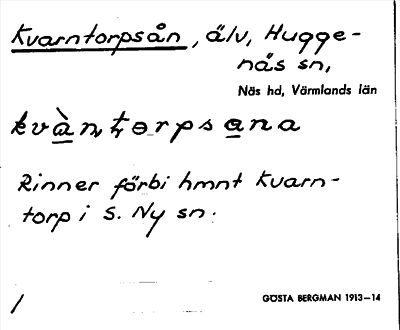 Kvarntorpsån, älv, Hugge-
näs sn,
Näs hd, Värmlands län
kvàn,t,orpsana
Rinner förbi hmnt Kvarn-
torp i S. Ny sn.
/
GÖSTA BERGMAN 1913–14